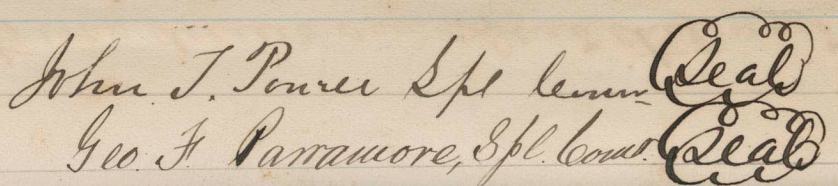 John T. Powell Spl Comr (Seal)
Geo. F. Parramore, Spl. Coms. (Seal)